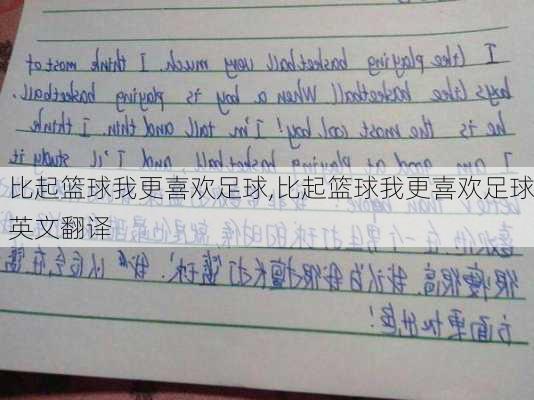 I like playing basketball very much. I think most of
boys like basketball. When a boy is playing basketball,
he is the most cool boy! I'm tall and thin. I think
I am good at playing basketball, and I'll study it
比起篮球我更喜欢足球,比起篮球我更喜欢足球
英文翻译
在一个男生打球的时候,就是他最
很瘦很高,我认为我很擅长打篮球,我 以后会在
方面更加出色!